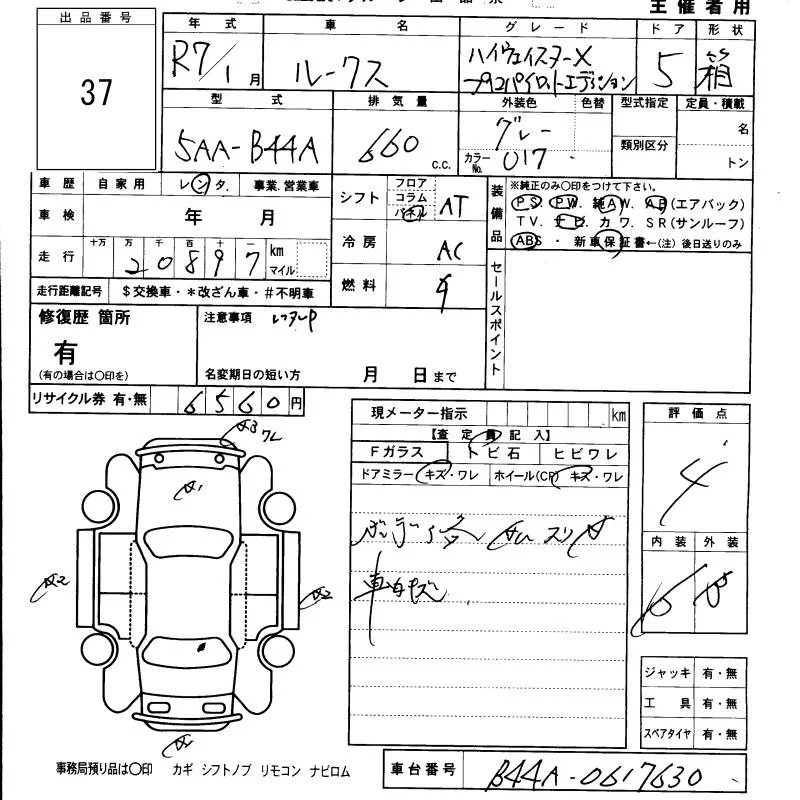 主催者用
出品番号
37
年式 車名 グレード ドア 形状
R7/1月 ルークス ハイウェイスターX プロパイロットエディション 5 箱
型式 排気量 外装色 色替 型式指定 定員・積載
5AA-B44A 660 c.c. グレー
カラーNo. 017
類別区分
名
トン
車歴 自家用 レンタ. 事業.営業車
車検 年 月
走行 十万 万 千 百 十 一 km マイル
20897
走行距離記号 $交換車・*改ざん車・#不明車
シフト フロア コラム パネル AT
冷房 AC
燃料
装備品
※純正のみ○印をつけて下さい。
PS PW. 純AW. AB(エアバック)
TV. カワ. SR(サンルーフ)
ABS ・ 新車保証書←(注)後日送りのみ
セールスポイント
修復歴 箇所
有
(有の場合は○印を)
注意事項 レンタUP
名変期日の短い方 月 日まで
リサイクル券 有・無 6560円
現メーター指示 km
【査定員記入】
Fガラス トビ石 ヒビワレ
ドアミラー キズ・ワレ ホイール(CP) キズ・ワレ
車内キズ
評価点
4
内装 外装
A3 ワレ
A1
A2
A2
ジャッキ 有・無
工具 有・無
スペアタイヤ 有・無
事務局預り品は○印 カギ シフトノブ リモコン ナビロム
車台番号 B44A-0617630